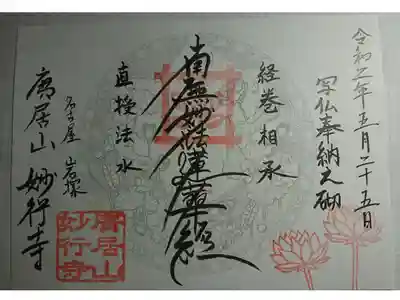 令和元年五月二十五日
写仏奉納之砌
経巻相承
南無妙法蓮華経
直授法水
名古屋 岩塚
廣居山 妙行寺
廣居山
妙行寺